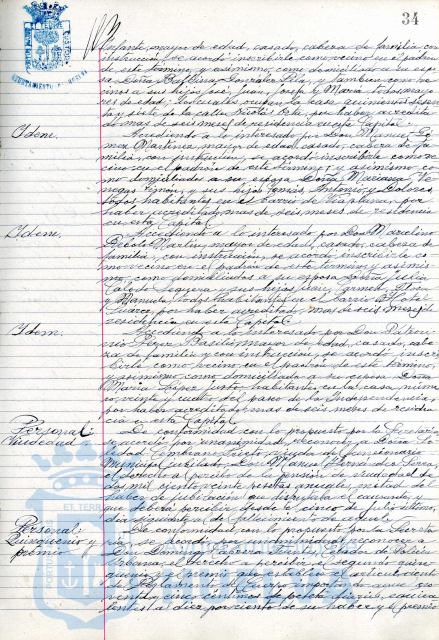 34
AYUNTAMIENTO DE HUELVA
Infante, mayor de edad, casado, cabeza de familia con
instrucción, se acordó inscribirle como vecino en el padrón
de este término, y asimismo, como domiciliados a su espo
sa Doña Balbina González Pila, y también como ve
cinos a sus hijos José, Juan, Josefa y María todos mayo
res de edad, los cuales ocupan la casa quinientos sesen
ta y siete de la calle Nicolás Orta, por haber acredita
do mas de seis meses de residencia en esta Capital.
Idem.
Accediendo a lo interesado por Don Manuel Gó
mez Martínez, mayor de edad, casado, cabeza de fa
milia, con instrucción, se acordó inscribirle como ve
cino en el padrón de este término y asimismo como
domiciliados a su esposa Doña Mariana
y sus hijos Tomás, Antonio, y Dolores,
todos habitantes en el barrio de Viaplana, por
haber acreditado mas de seis meses de residencia
en esta Capital.
Idem.
Accediendo a lo interesado por Don Marcelino
Martín, mayor de edad, casado, cabeza de
familia, con instrucción, se acordó inscribirle co
mo vecino en el padrón de este término, y asimis
mo, como domiciliados a su esposa Doña
y sus hijos Juan, Carmen,
y Manuela, todos habitantes en el barrio
Suárez, por haber acreditado mas de seis meses de
residencia en esta Capital.
Idem.
Accediendo a lo interesado por Don
Pérez Basilio, mayor de edad, casado, cabe
za de familia y con instrucción, se acordó inscri
birle como vecino en el padrón de este término
y asimismo como domiciliada a su esposa Doña
María López Justo, habitantes en la casa núme
ro veinte y cuatro del paseo de la Independencia,
por haber acreditado mas de seis meses de residen
cia en esta Capital.
Personal:
Viudedad
De conformidad con lo propuesto por la Secretaría
se acordó por unanimidad, reconocer a Doña So
ledad Zambrano viuda del funcionario
Municipal jubilado, Don Manuel
el derecho a percibo de la pensión de viudedad de
dos mil ciento pesetas anuales, mitad del
haber de jubilación que disfrutaba el causante, y
que deberá percibir desde el cinco de julio último,
día siguiente al de fallecimiento de aquel.
Personal:
Quinquenio y
premio
De conformidad con lo propuesto por la Secreta
ría, se acordó por unanimidad, reconocer a
Don Domingo Cabrera Fuentes, Cabo de Policía
Urbana, el derecho a percibir el segundo quin
quenio y el premio que establece el artículo
del Reglamento del Cuerpo importando aquel
venta y cinco céntimos de peseta diarios, equiva
lentes al diez por ciento de su haber, y el premio